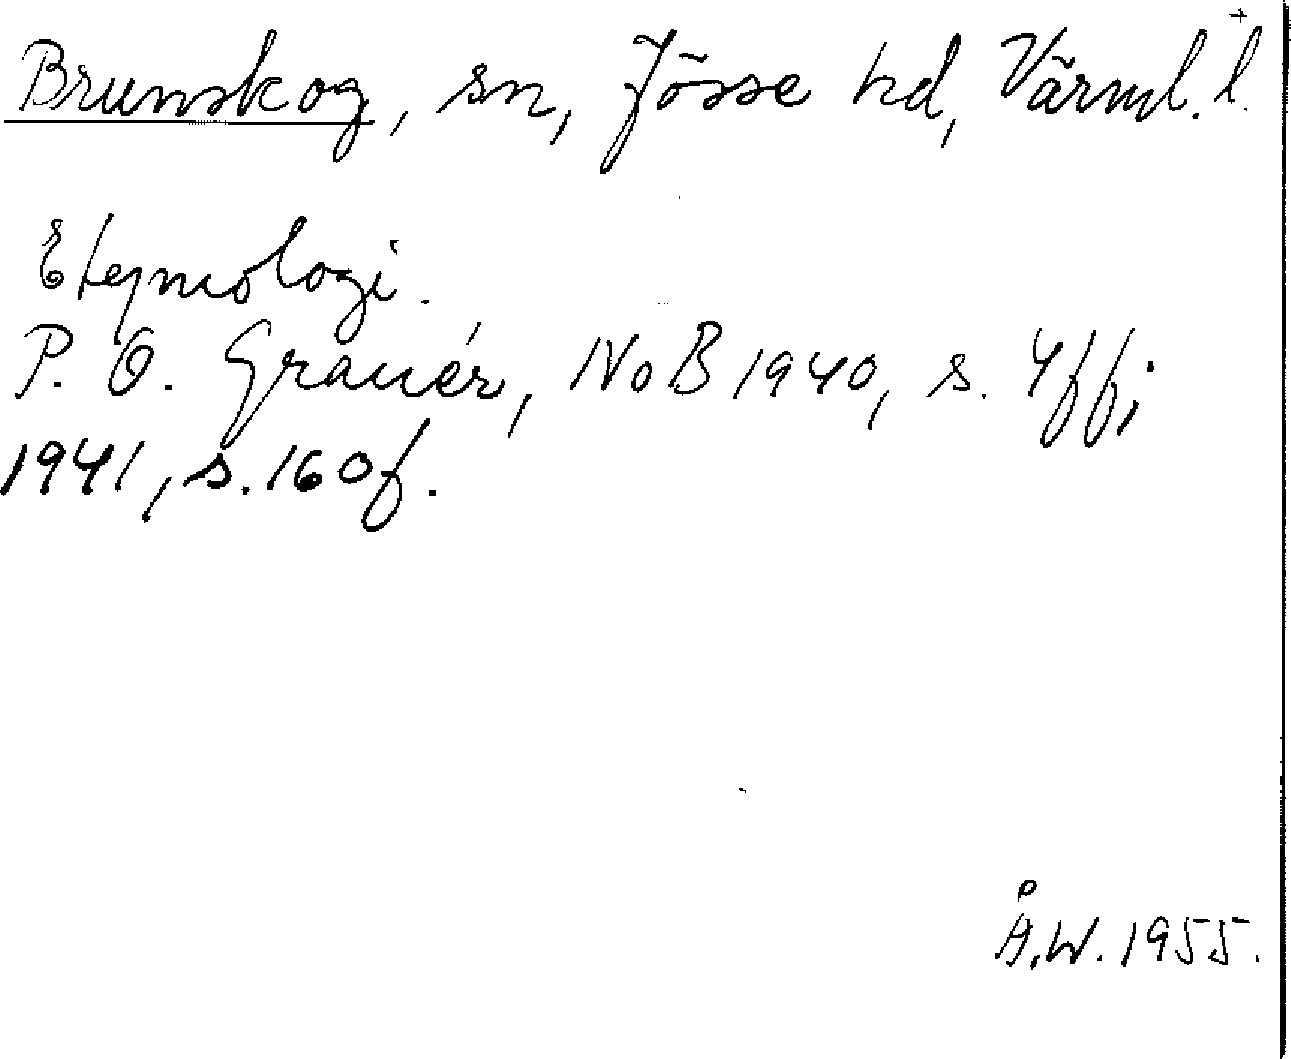 Brunskog, sn, Jösse hd, Värml. l.
Etymologi.
P. O. Granér, NoB 1940, s. 4ff;
1941, s. 160f.
Å.W. 1955.